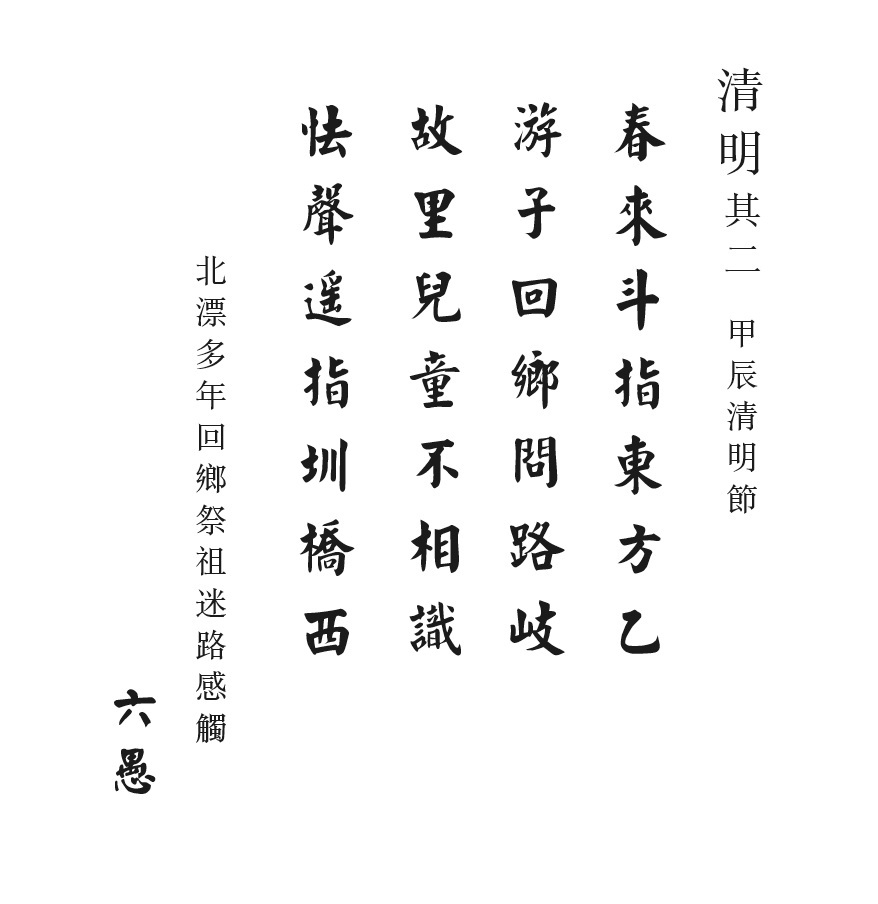 清明其二 甲辰清明節
春來斗指東方乙
游子回鄉問路岐
故里兒童不相識
怯聲遥指圳橋西
北漂多年回鄉祭祖迷路感觸
六愚